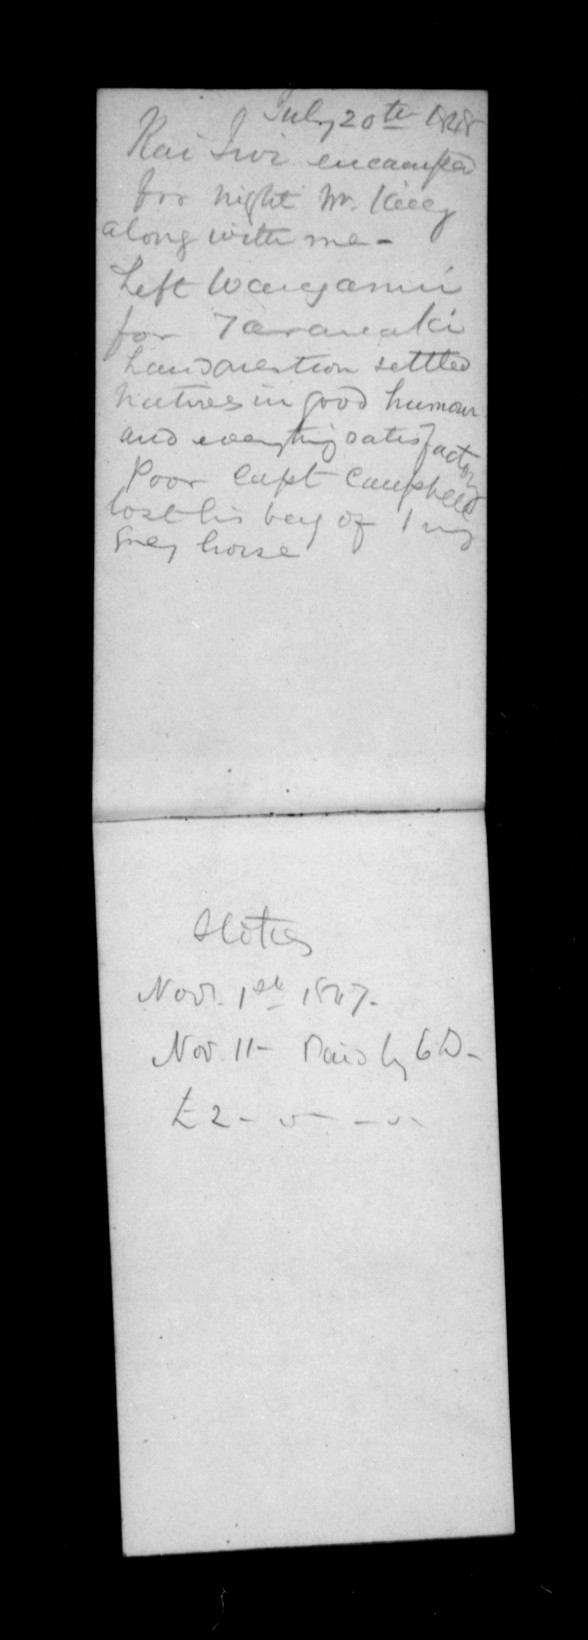 July 20th 1848
Kai Iwi encamped
for night Mr. Kelly
along with me -
Left Wanganui
for Taranaki
Land question settled
Natives in good humour
and everything satisfactory
Poor Capt Campbell
lost his bay & I my
Grey horse
Novr. 1st 1847.
Nov. 11 - Paid by
£2 -